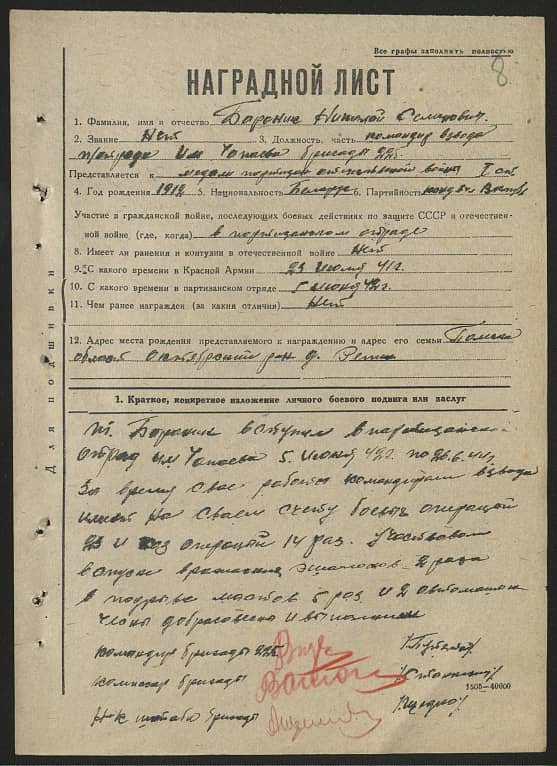 Все графы заполнять полностью
8
НАГРАДНОЙ ЛИСТ
1. Фамилия, имя и отчество Бараник Николай Семенович.
2. Звание Нет 3. Должность, часть командир взвода
п/отряда им Чапаева бригады 225
Представляется к медали партизан отечественной войны I ст
4. Год рождения 1912 5. Национальность Белорус 6. Партийность
Участие в гражданской войне, последующих боевых действиях по защите СССР и отечествен-
ной войне (где, когда) в партизанском отряде
8. Имеет ли ранения и контузии в отечественной войне Нет
9. С какого времени в Красной Армии 23 июля 41 г.
10. С какого времени в партизанском отряде 5 июня 42 г.
11. Чем ранее награжден (за какия отличия) Нет
12. Адрес места рождения представляемого к награждению и адрес его семьи
область Октябрьский р-н д.
Для подшивки
1. Краткое, конкретное изложение личного боевого подвига или заслуг
Бараник вступил в партизанский
отряд им Чапаева 5. июня 42 г. по 26.6.44 г.
За время свое работы командиром взвода
имеет на своем счету боевых операций
23 и операций 14 раз. Участвовал
в спуске вражеских эшалонов 2 раза
в подрыве мостов 5 раз и 2 автомашин
добросовестно и выполнил
командир бригады 225
комиссар бригады
Н-к штаба бригады
1505—40000